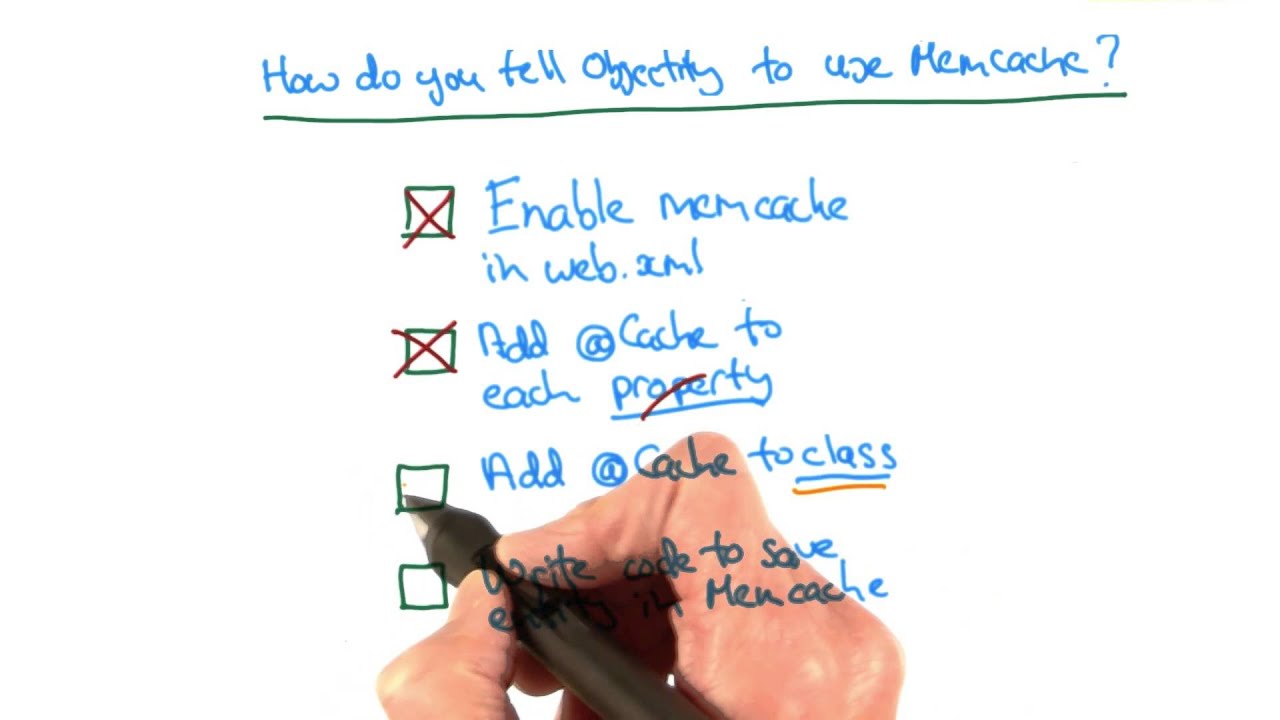 How do you tell Objectify to use Memcache?
Enable memcache
in web.xml
Add @Cache to
each property
Add @Cache to class
Write code to save
entity in Memcache